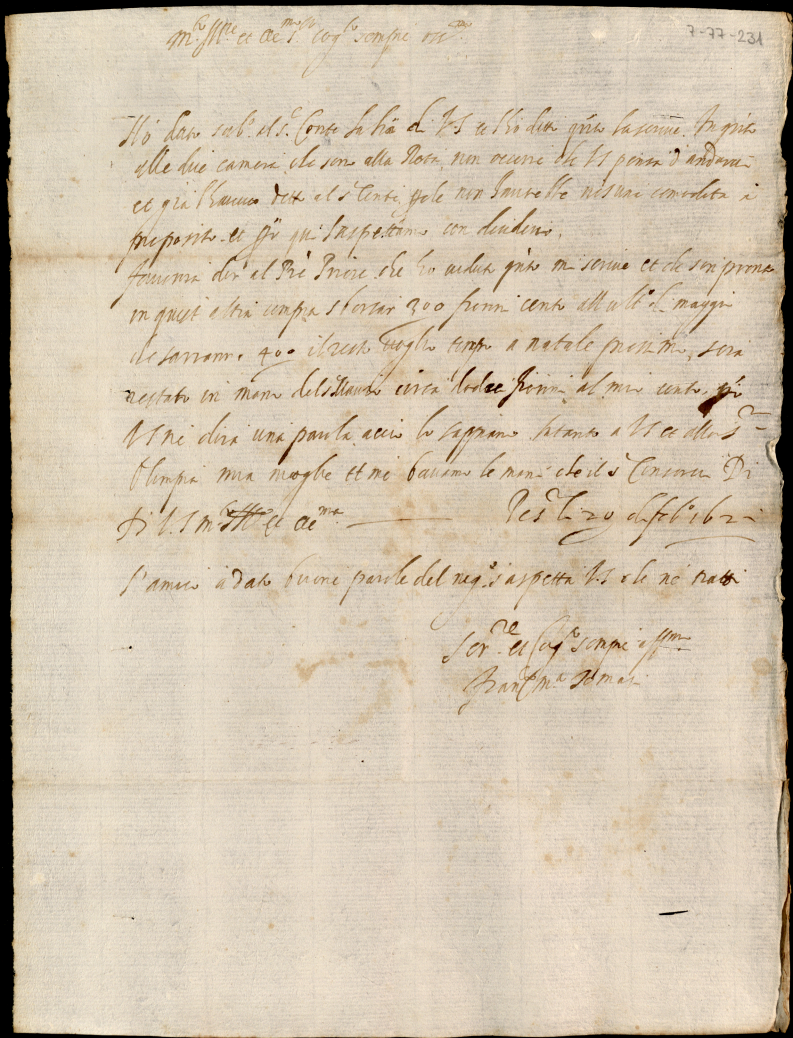 7-77-231
m.to Ill.re et Ec.mo S.r Cog.to sempre oss.mo
Hò dato sub.o al S.r Conte la l'ra di V S et ho detto q'nto la scrive. In q'nto
alle due camere che sono alla Rota, non occorre che V S pensa d'andarvi
et già l'havevo detto al S Conte, che non haverebbe nisuna comodità a
proposito et qui l'aspettamo con desiderio.
favorirà dir al P're Priore che ho veduto q'nto mi scrive et che son pronto
in quest altra sborsar 300 fiorini cento all ult.o di maggio
che saranno 400 il resto voglio tempo a natale prossimo, sera
restato in mano del circa fiorini al mio conto,
V S ne dira una parola acciò lo sappiano. Intanto a V S et alla S.ra
Olimpia mia moglie et me baciamo le mani che il S Conservi Di
Di V. S m.to Ill.re et Ec.ma 20 di feb.o 162
L'amico à dato buone parole del neg.o s'aspetta V. S che ne tratti
Ser.re et Cog.to sempre aff.mo
Fran.co M.a